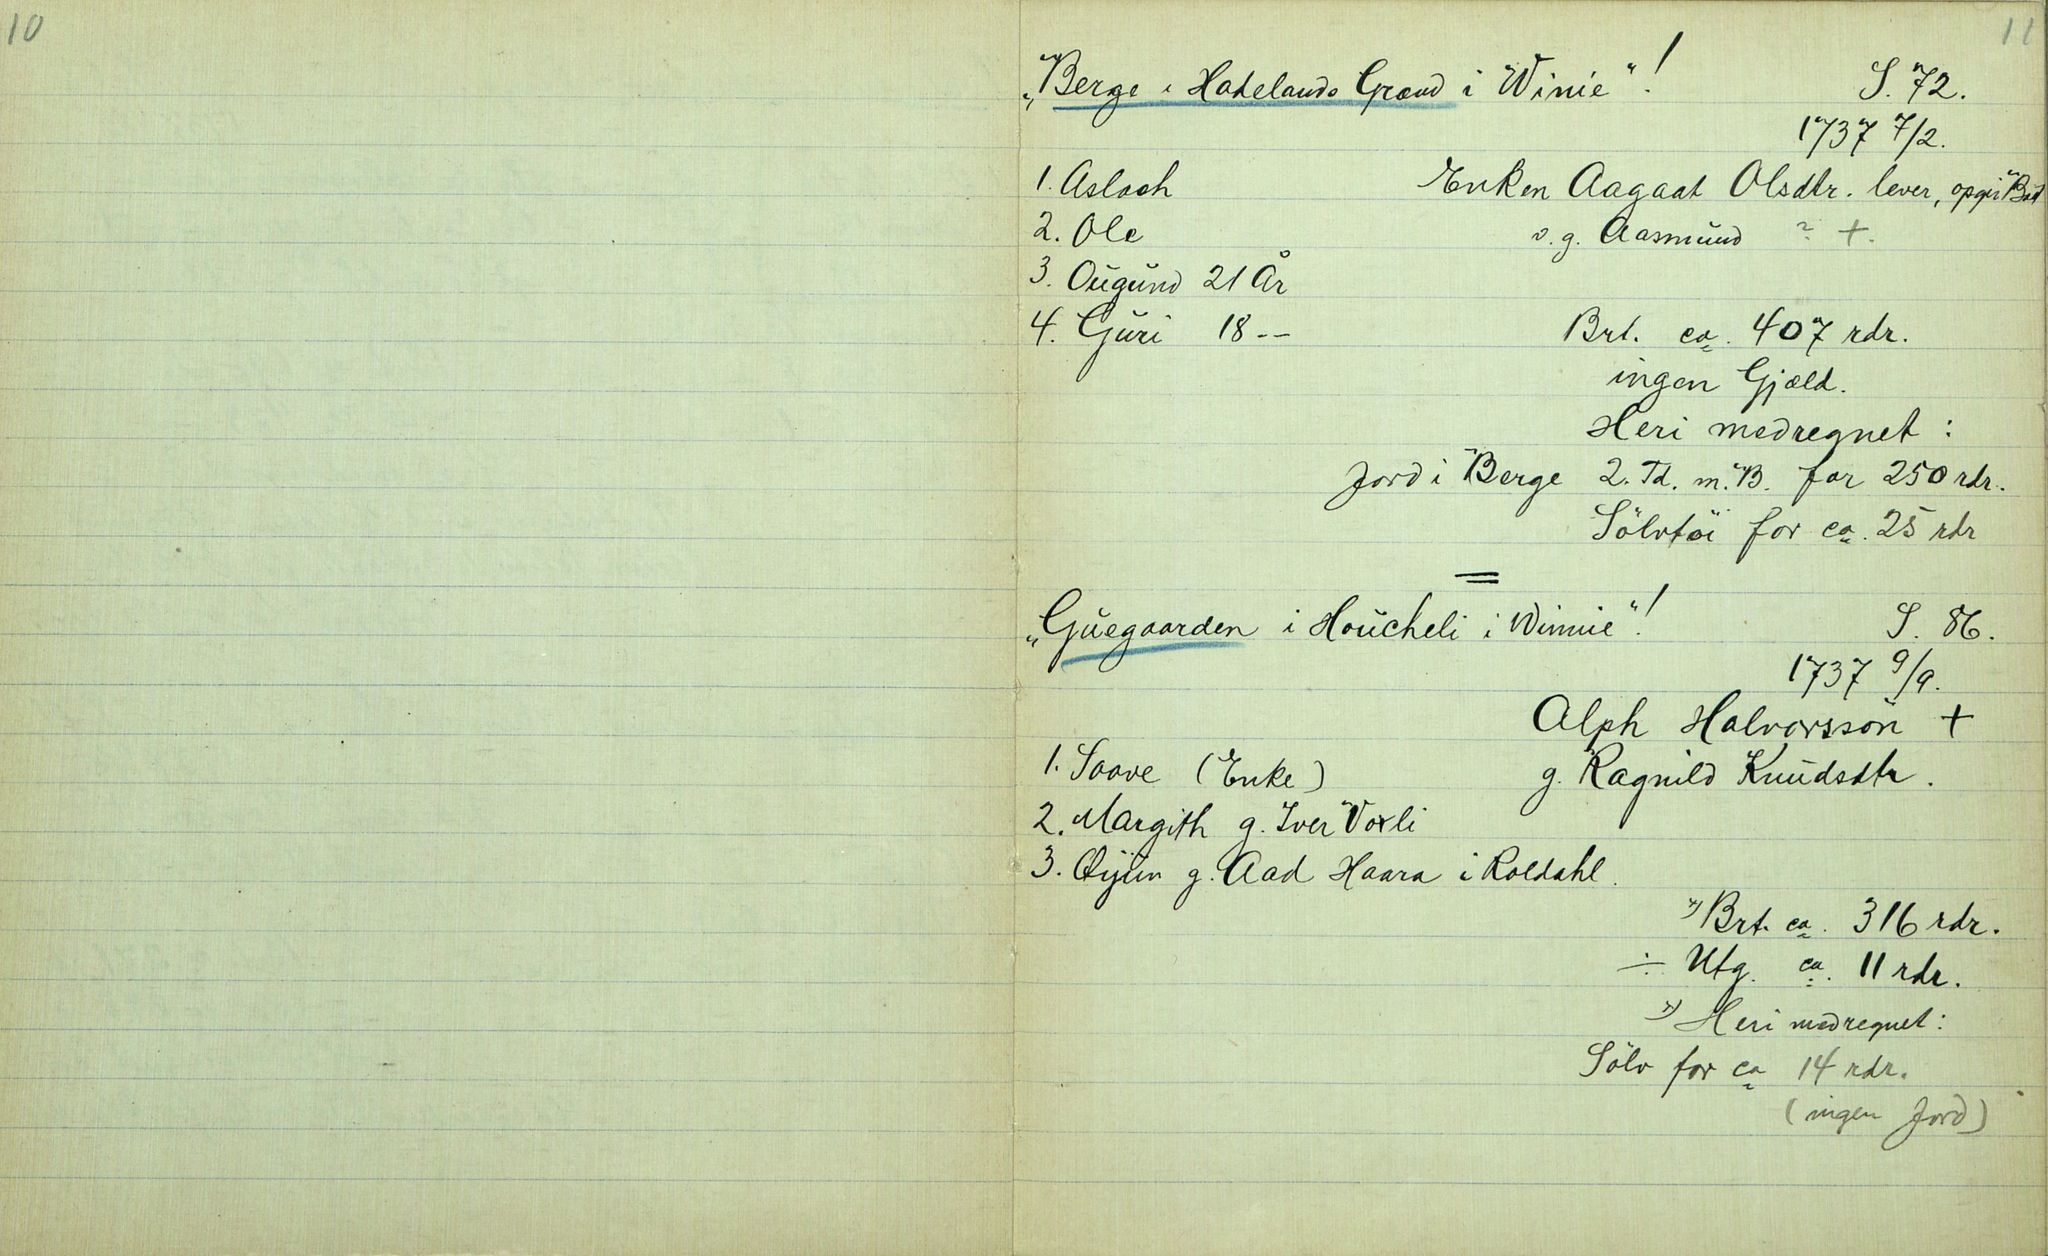 10
11
„Berge i Hadelands Grænd i Winie"! S. 72.
1737 7/2.
1. Asloch Enken Aagaat Olsdtr. lever, opgir Bod
2. Ole v. g. Aasmund ? +.
3. Ougund 21 År
4. Guri 18 --
Brt. ca. 407 rdr.
ingen Gjæld.
Heri medregnet:
Jord i Berge 2. Td. m. B. for 250 rdr.
Sölvtöi for ca. 25 rdr
„Guegaarden i Houcheli i Winnie"! S. 86.
1737 9/9.
Alph Halvorsson +
1. Saave (Enke) g. Ragnild Knudsdtr.
2. Margith g. Iver Voxli
3. Øijun g. Aad Haara i Roldahl.
x) Brt. ca. 316 rdr.
÷ Utg. ca. 11 rdr.
x) Heri medregnet:
Sölv for ca 14 rdr.
(ingen Jord)